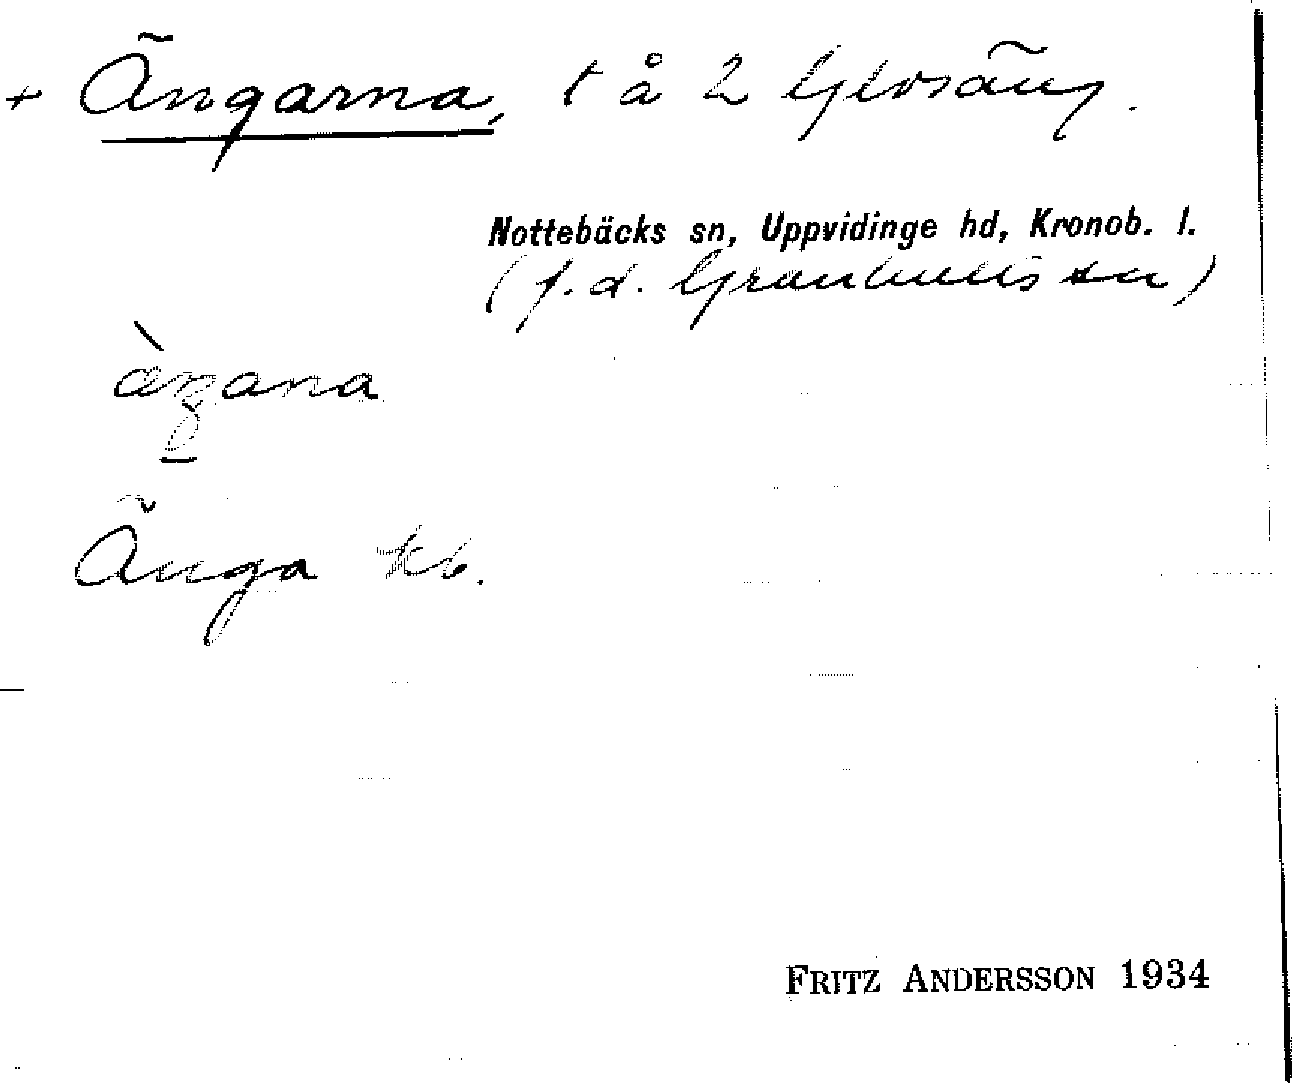 + Ängarna, t å 2 Glosäng.
Nottebäcks sn, Uppvidinge hd, Kronob. l.
(f.d. Granhults sn)
Änga kb.
FRITZ ANDERSSON 1934